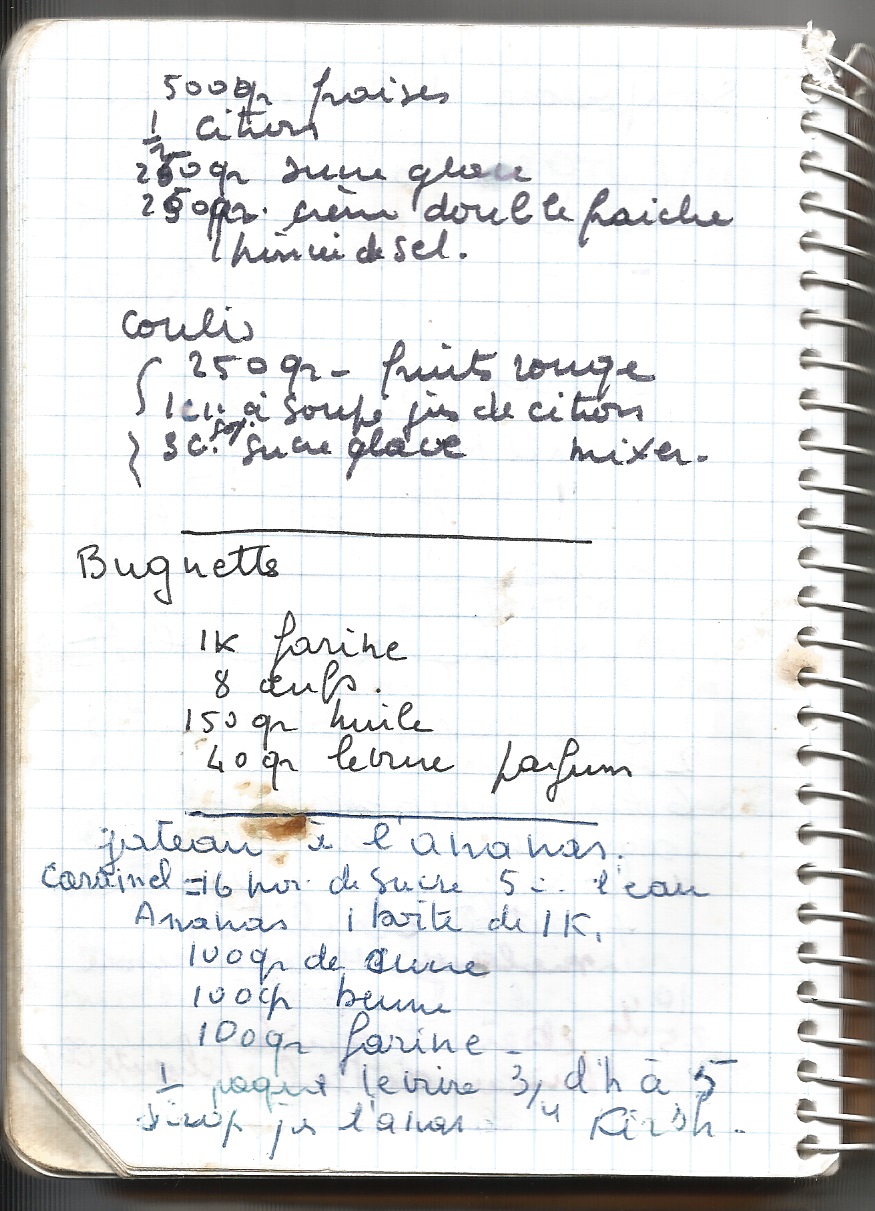 500gr fraises
1/2 citron
250gr sucre glace
250gr. crème double fraiche
1 pincée de sel.
Coulis
250gr - fruits rouge
1 cu. à soupe jus de citron
3 c. sp. sucre glace mixer.
Bugnettes
1K farine
8 œufs.
150gr huile
40gr levure parfum
gateau à l'ananas.
Caramel = 16 mor. de sucre 5 l'eau
Ananas 1 boîte de 1K.
100gr de sucre
100gr beurre
100gr farine -
1/2 paquet levure 3/4 d'h à 5
Sirop jus l'anas Kirsh.